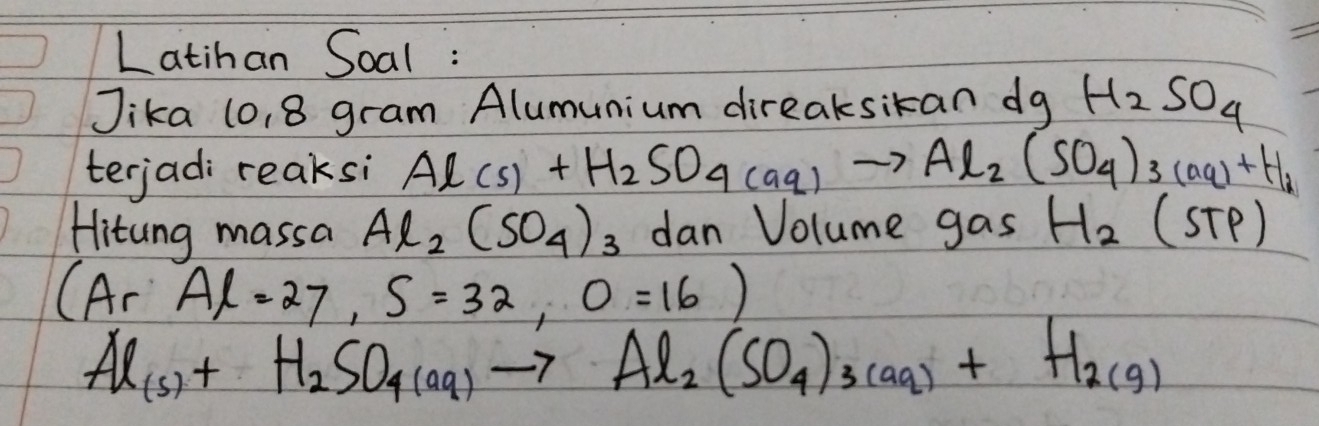 Latihan Soal :
Jika 10,8 gram Alumunium direaksikan dg H2SO4
terjadi reaksi Al(s) + H2SO4(aq) → Al2(SO4)3(aq) + H2
Hitung massa Al2(SO4)3 dan Volume gas H2 (STP)
(Ar Al = 27, S = 32, O = 16)
Al(s) + H2SO4(aq) → Al2(SO4)3(aq) + H2(g)